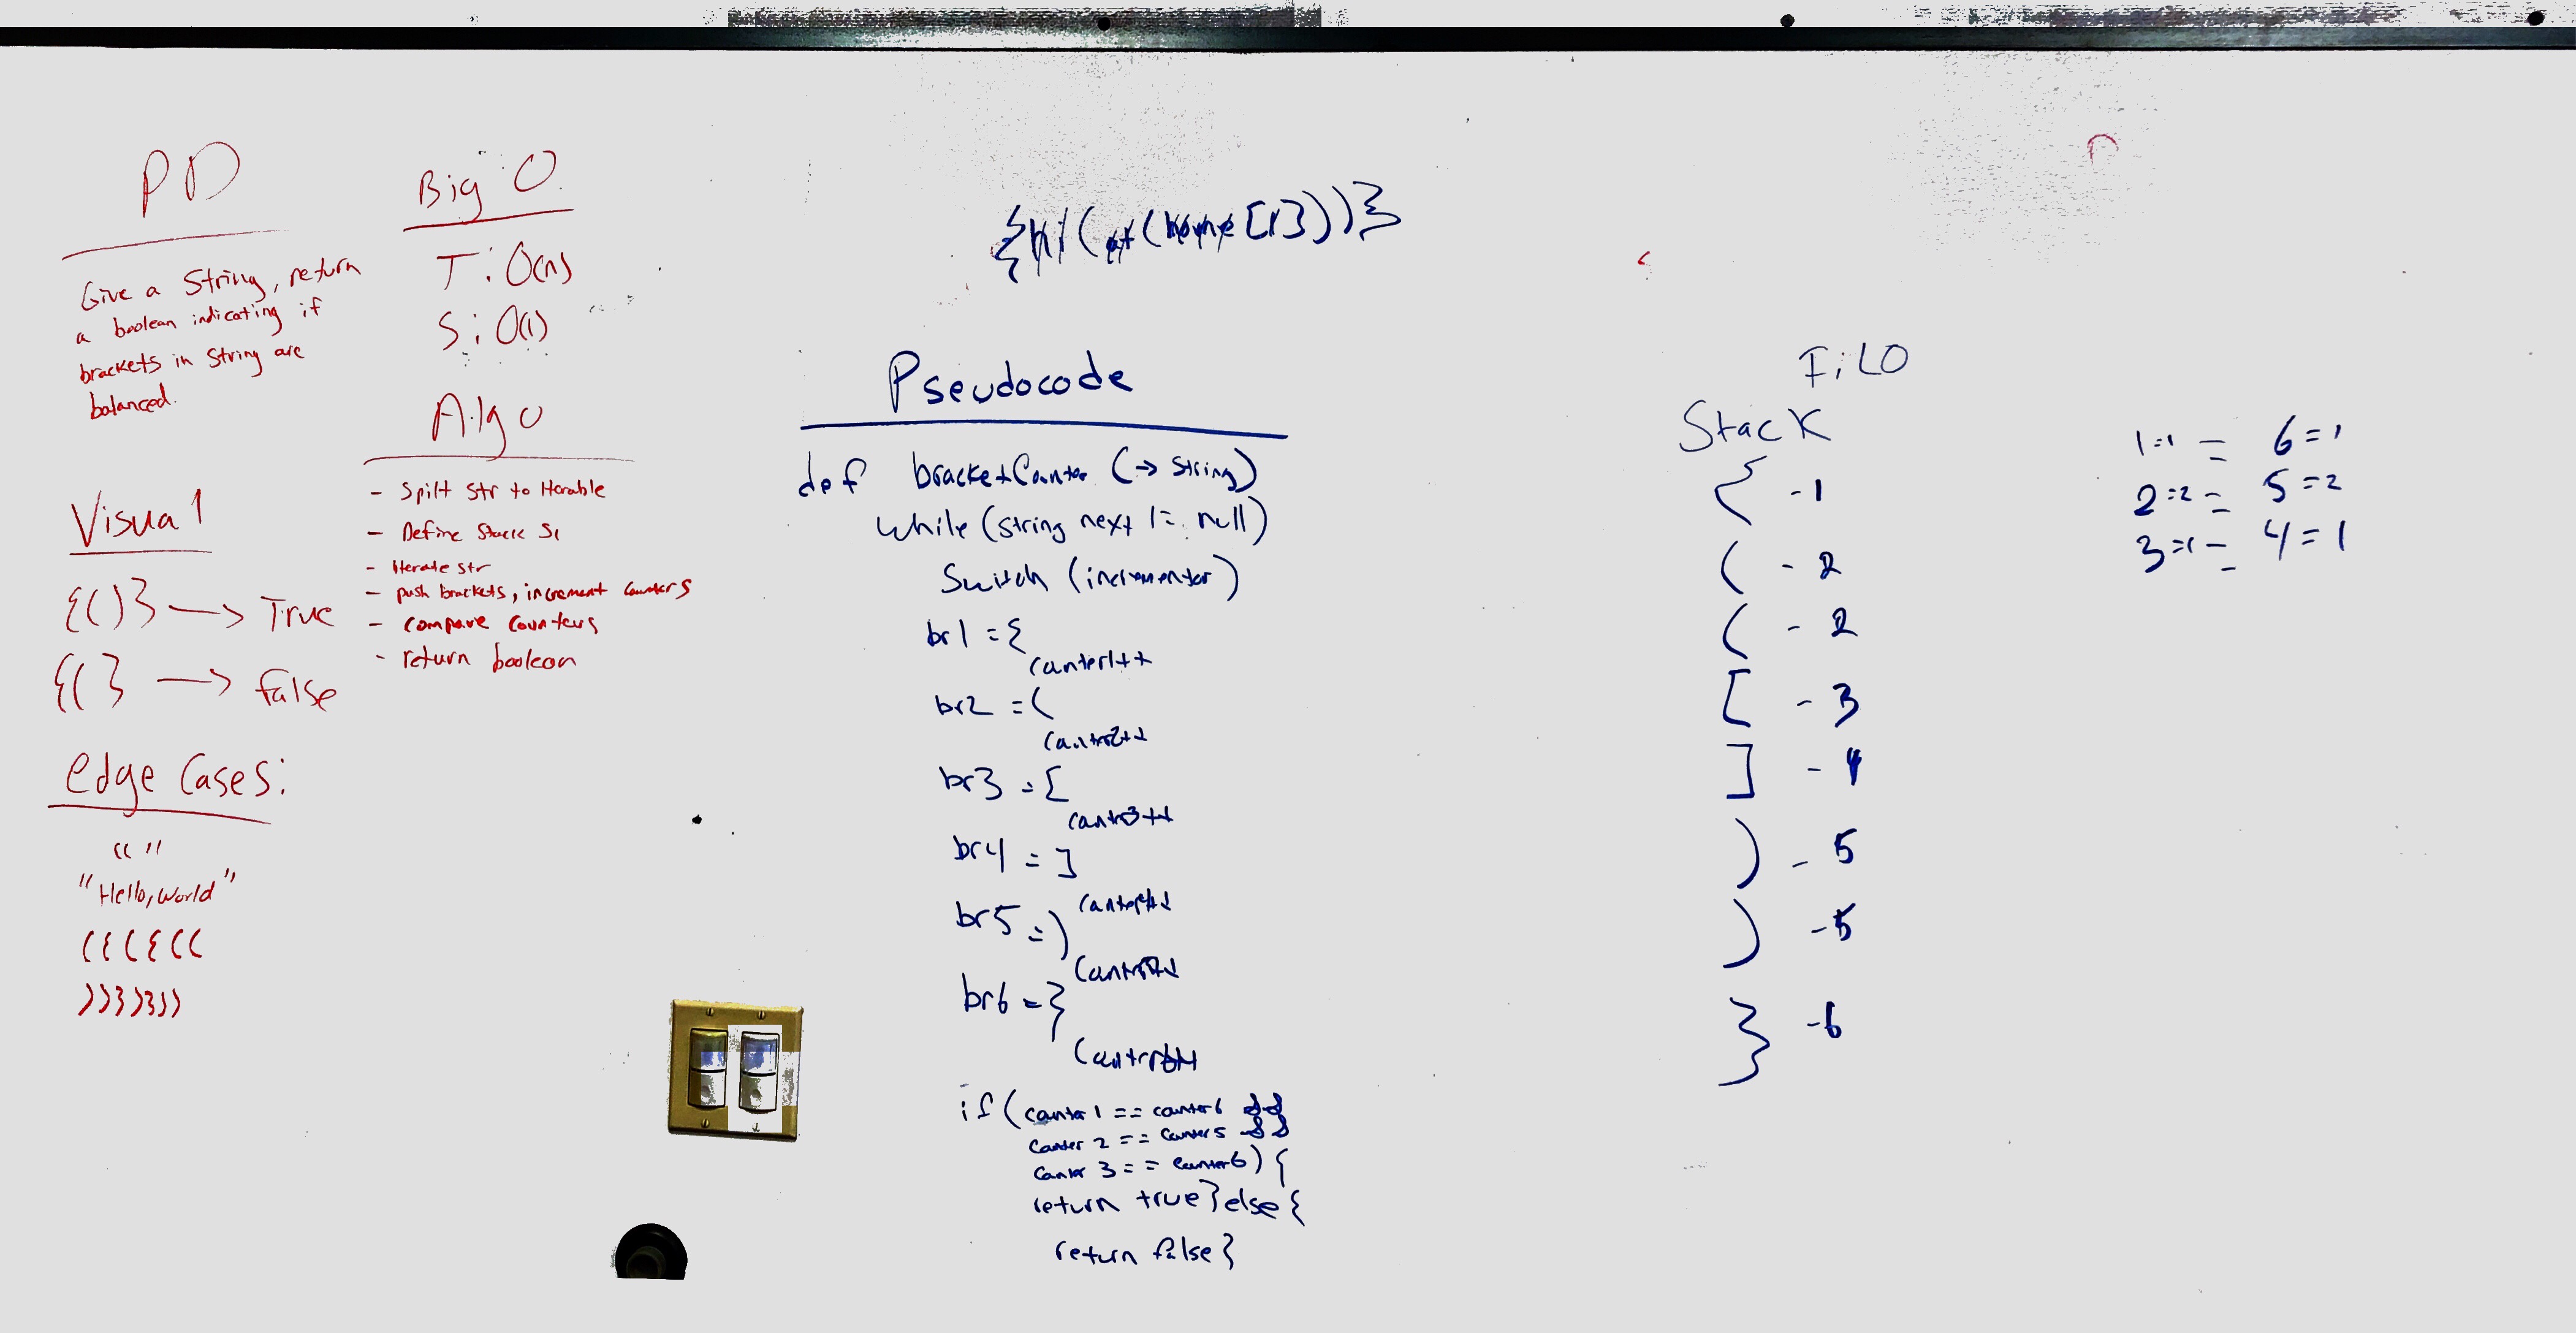 PD
Give a String, return
a boolean indicating if
brackets in String are
balanced.
Visual
{()} —> True
{(} —> false
edge Cases:
" "
"Hello, world"
({({((
))})}))
Big O
T: O(n)
S: O(1)
Algo
- Spilt str to Iterable
- Define Stack S1
- Iterate str
- push brackets, increment counters
- compare counters
- return boolean
{hi(at(home[1]))}
Pseudocode
def bracketCounter (-> String)
while (string next != null)
Switch (incrementor)
br1 = {
counter1++
br2 = (
counter2++
br3 = [
counter3++
br4 = ]
counter4++
br5 = )
counter5++
br6 = }
counter6++
if (counter1 == counter6 &&
counter 2 == counter5 &&
counter 3 == counter6) {
return true} else {
return false}
FiLO
Stack
{ - 1
( - 2
( - 2
[ - 3
] - 4
) - 5
) - 5
} - 6
1=1 = 6=1
2=2 = 5=2
3=1 = 4=1